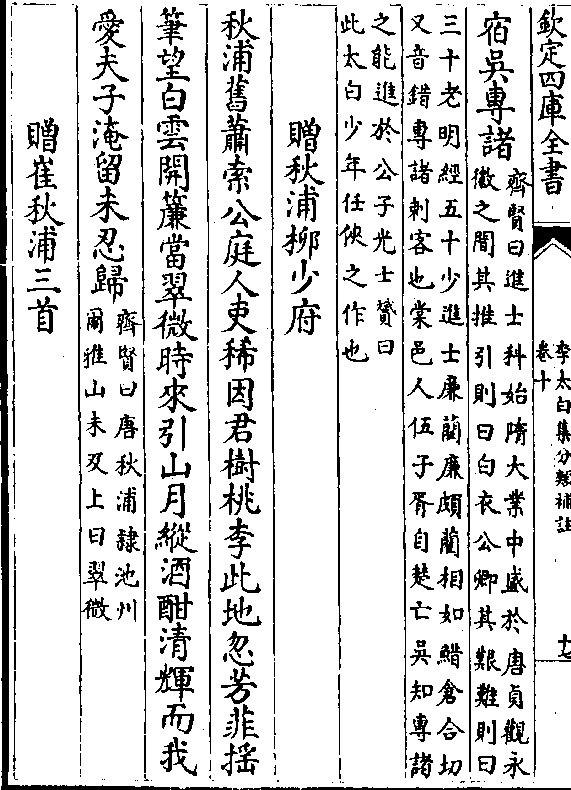 欽定四庫全書
李太白集分類補註
卷十
十七
宿吳專諸
齊賢曰進士科始隋大業中盛於唐貞觀永
徽之間其推引則曰白衣公卿其艱難則曰
三十老明經五十少進士廉藺廉頗藺相如䱜倉合切
又音錯專諸刺客也棠邑人伍子胥自楚亡吳知專諸
之能進於公子光士贇曰
此太白少年任俠之作也
贈秋浦柳少府
秋浦舊蕭索公庭人吏稀因君樹桃李此地忽芳菲揺
筆望白雲開簾當翠微時來引山月縱酒酣清輝而我
愛夫子淹留未忍歸
齊賢曰唐秋浦隷池州
爾雅山未及上曰翠微
贈崔秋浦三首